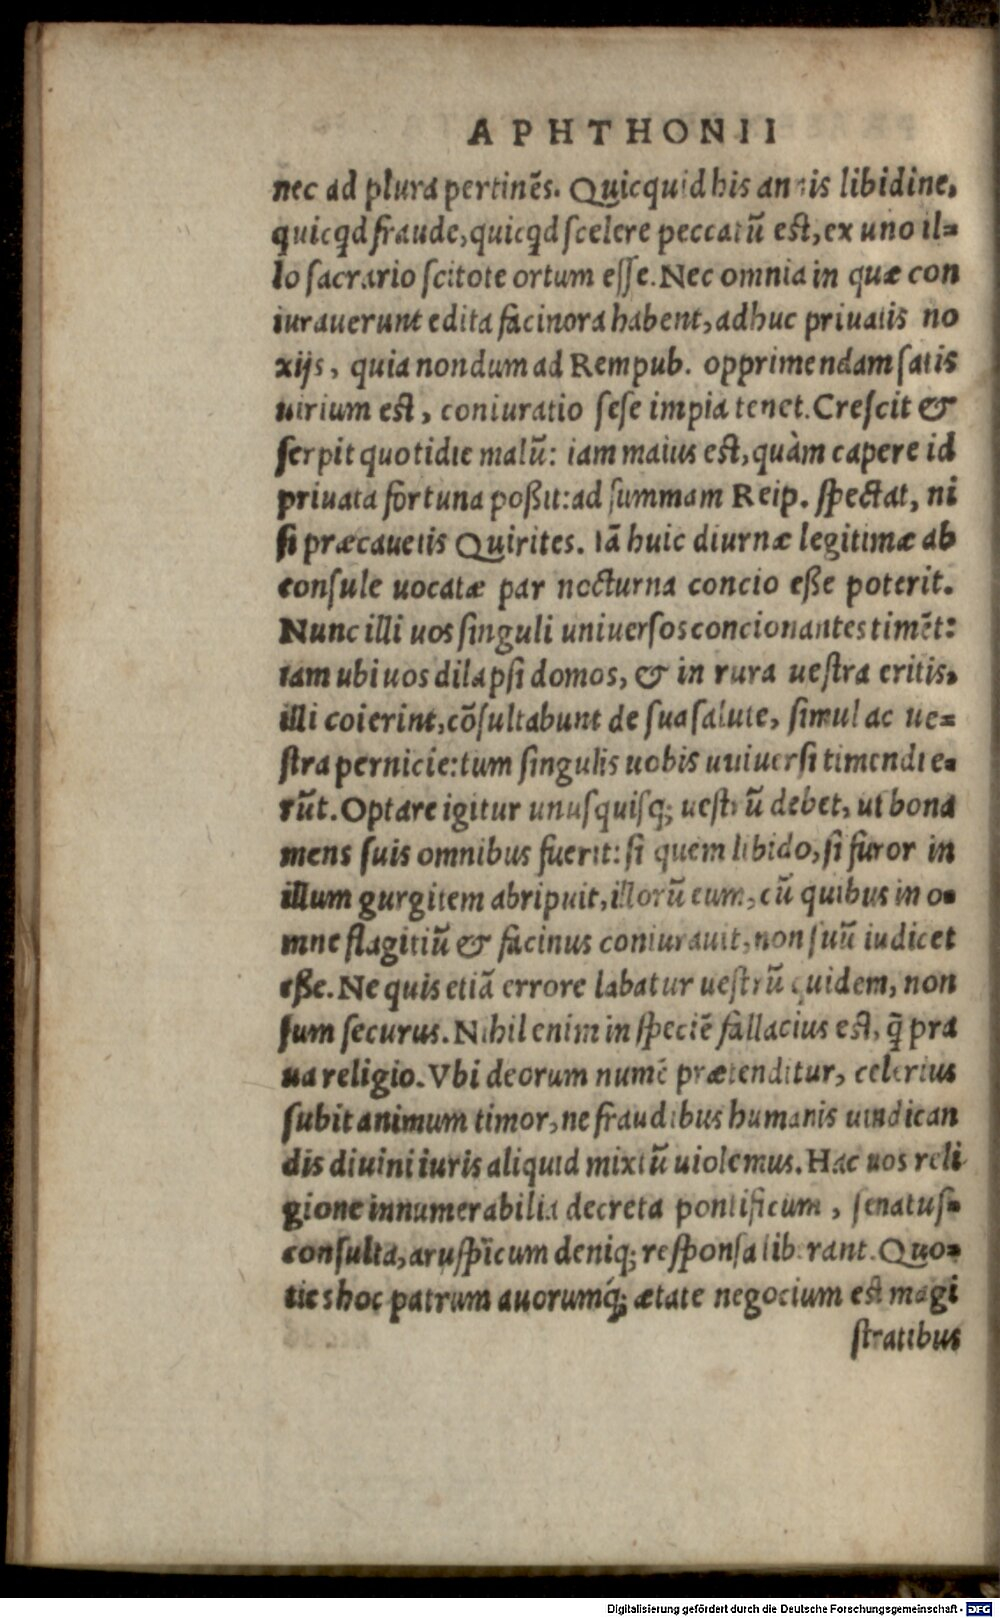 APHTHONII
nec ad plura pertinēs. Quicquid his annis libidine,
quicq̃d fraude, quicq̃d scelere peccatū est, ex uno il=
lo sacrario scitote ortum esse. Nec omnia in quæ con
iurauerunt edita facinora habent, adhuc priuatis no
xijs, quia nondum ad Rempub. opprimendam satis
uirium est, coniuratio sese impia tenet. Crescit &
serpit quotidie malū: iam maius est, quàm capere id
priuata fortuna poßit: ad summam Reip. spectat, ni
si præcauetis Quirites. Iā huic diurnæ legitimæ ab
consule uocatæ par nocturna concio eße poterit.
Nunc illi uos singuli uniuersos concionantes timēt:
iam ubi uos dilapsi domos, & in rura uestra eritis,
illi coierint, cōsultabunt de sua salute, simul ac ue=
stra pernicie: tum singulis uobis uniuersi timendi e=
rūt. Optare igitur unusquisq; uestrū debet, ut bona
mens suis omnibus fuerit: si quem libido, si furor in
illum gurgitem abripuit, illorū eum, cū quibus in o=
mne flagitiū & facinus coniurauit, non suū iudicet
eße. Ne quis etiā errore labatur uestrū quidem, non
sum securus. Nihil enim in speciē fallacius est, q̄ pra
ua religio. Vbi deorum numē prætenditur, celerius
subit animum timor, ne fraudibus humanis uindican
dis diuini iuris aliquid mixtū uiolemus. Hac uos reli
gione innumerabilia decreta pontificum, senatus=
consulta, aruspicum deniq; responsa liberant. Quo=
ties hoc patrum auorumq́; ætate negocium est magi
stratibus
Digitalisierung gefördert durch die Deutsche Forschungsgemeinschaft - DFG